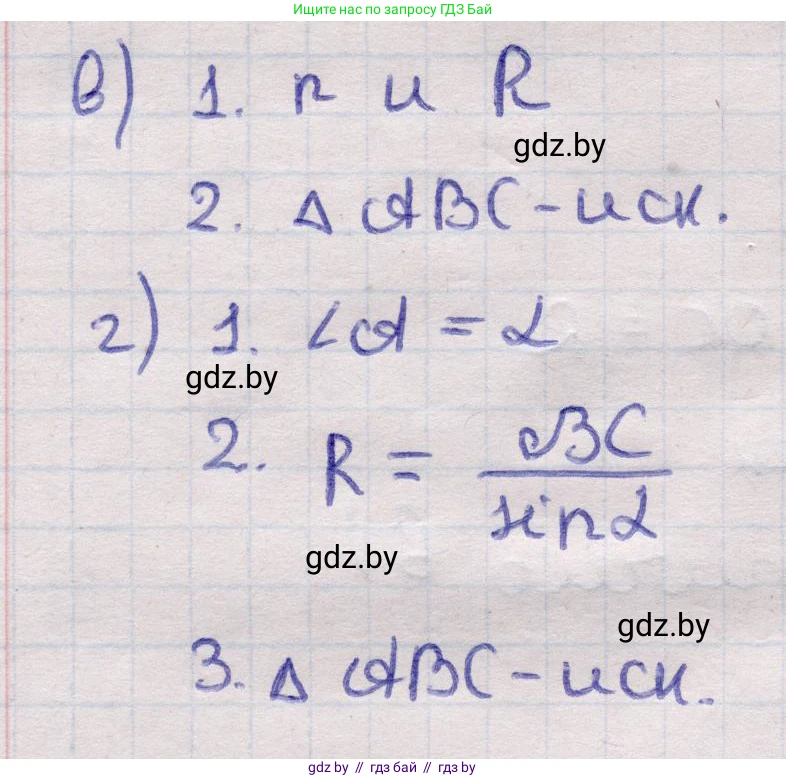 Ищите нас по запросу ГДЗ Бай
в) 1. r и R
gdz.by
2. Δ ABC - иск.
г) 1. ∠A = α
gdz.by
2. R = BC / sin α
gdz.by
gdz.by
3. Δ ABC - иск.
gdz.by // гдз бай // гдз by